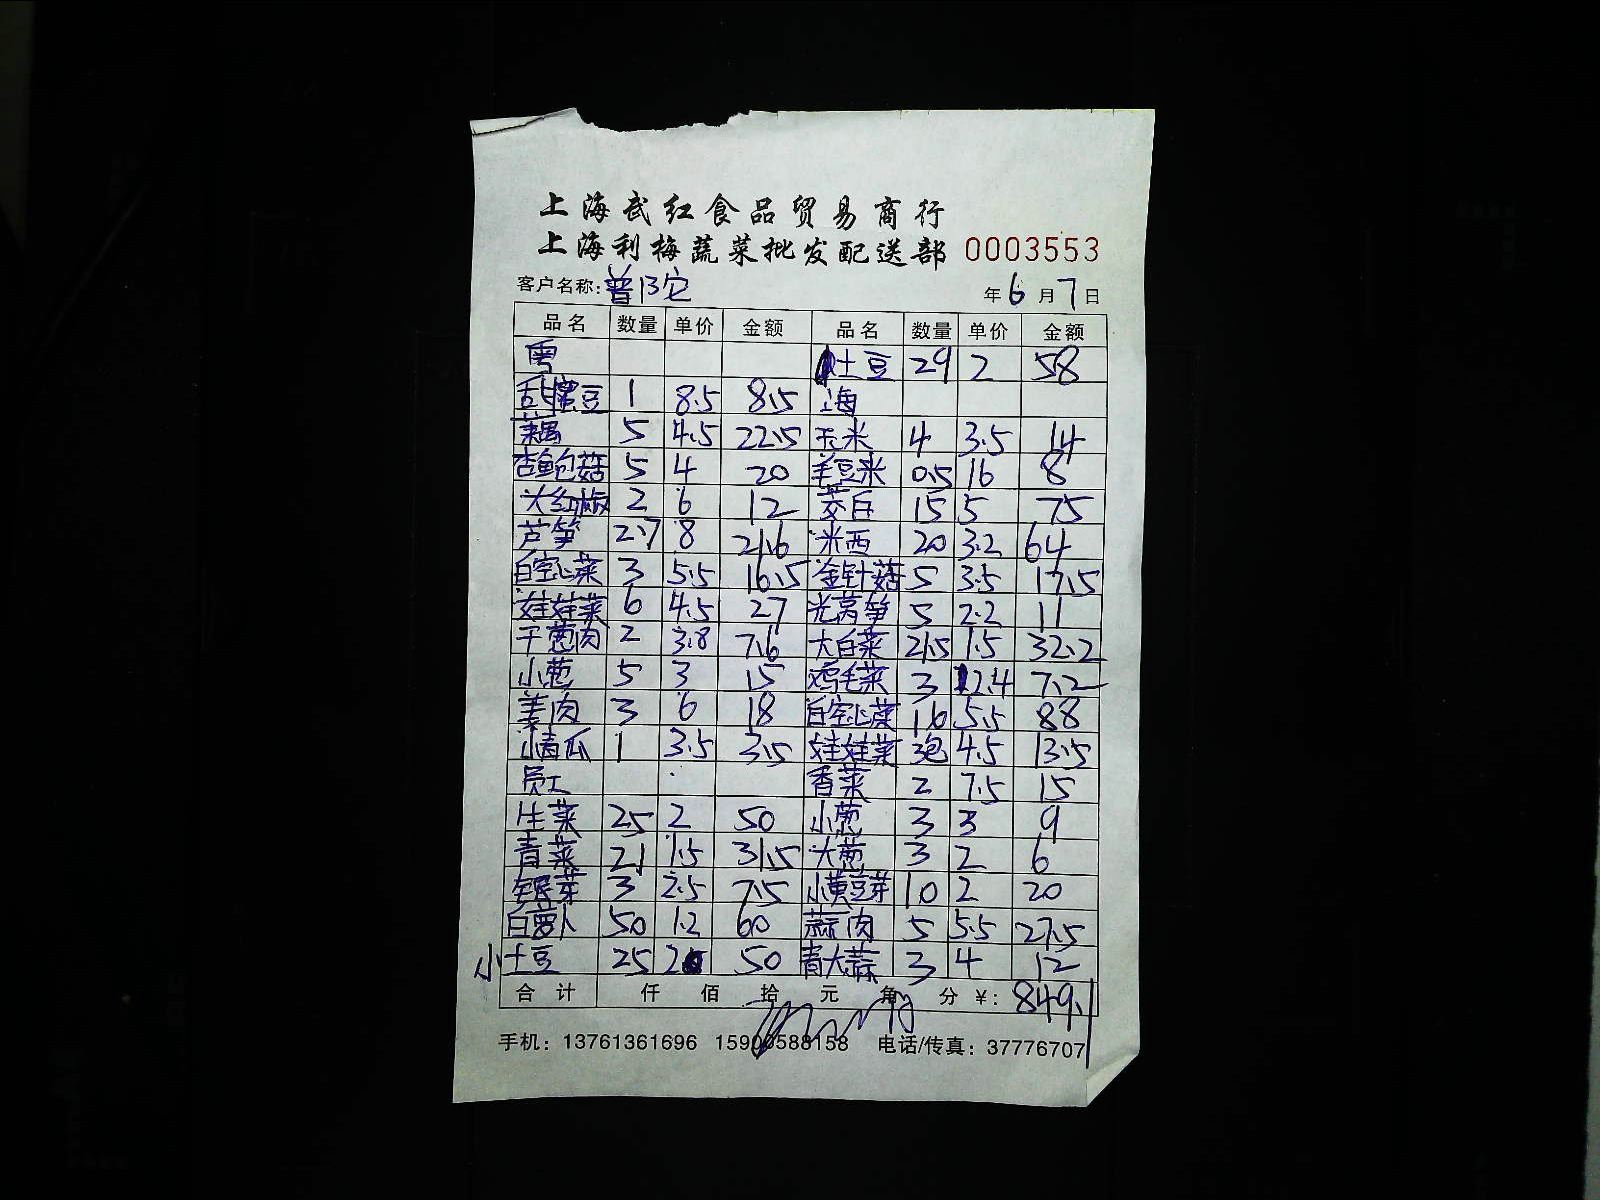 上海武红食品贸易商行
上海利梅蔬菜批发配送部 0003553
客户名称: 普陀 年 6 月 7 日
品名 数量 单价 金额 品名 数量 单价 金额
粤 土豆 29 2 58
豆 1 8.5 8.5 上海
藕 5 4.5 22.5 玉米 4 3.5 14
杏鲍菇 5 4 20 羊豆米 0.5 16 8
大红椒 2 6 12 茭白 15 5 75
芦笋 2.7 8 21.6 米西 20 3.2 64
白空心菜 3 5.5 16.5 金针菇 5 3.5 17.5
娃娃菜 6 4.5 27 光莴笋 5 2.2 11
干葱肉 2 3.8 7.6 大白菜 21.5 1.5 32.2
小葱 5 3 15 鸡毛菜 3 2.4 7.2
姜肉 3 6 18 白空心菜 16 5.5 88
小青瓜 1 3.5 3.5 娃娃菜 3包 4.5 13.5
员工 香菜 2 7.5 15
生菜 25 2 50 小葱 3 3 9
青菜 21 1.5 31.5 大葱 3 2 6
银芽 3 2.5 7.5 小黄豆芽 10 2 20
白萝卜 50 1.2 60 蒜肉 5 5.5 27.5
小土豆 25 2 50 青大蒜 3 4 12
合计 仟 佰 拾 元 角 分 ¥: 849.1
手机: 13761361696 15900588158 电话/传真: 37776707